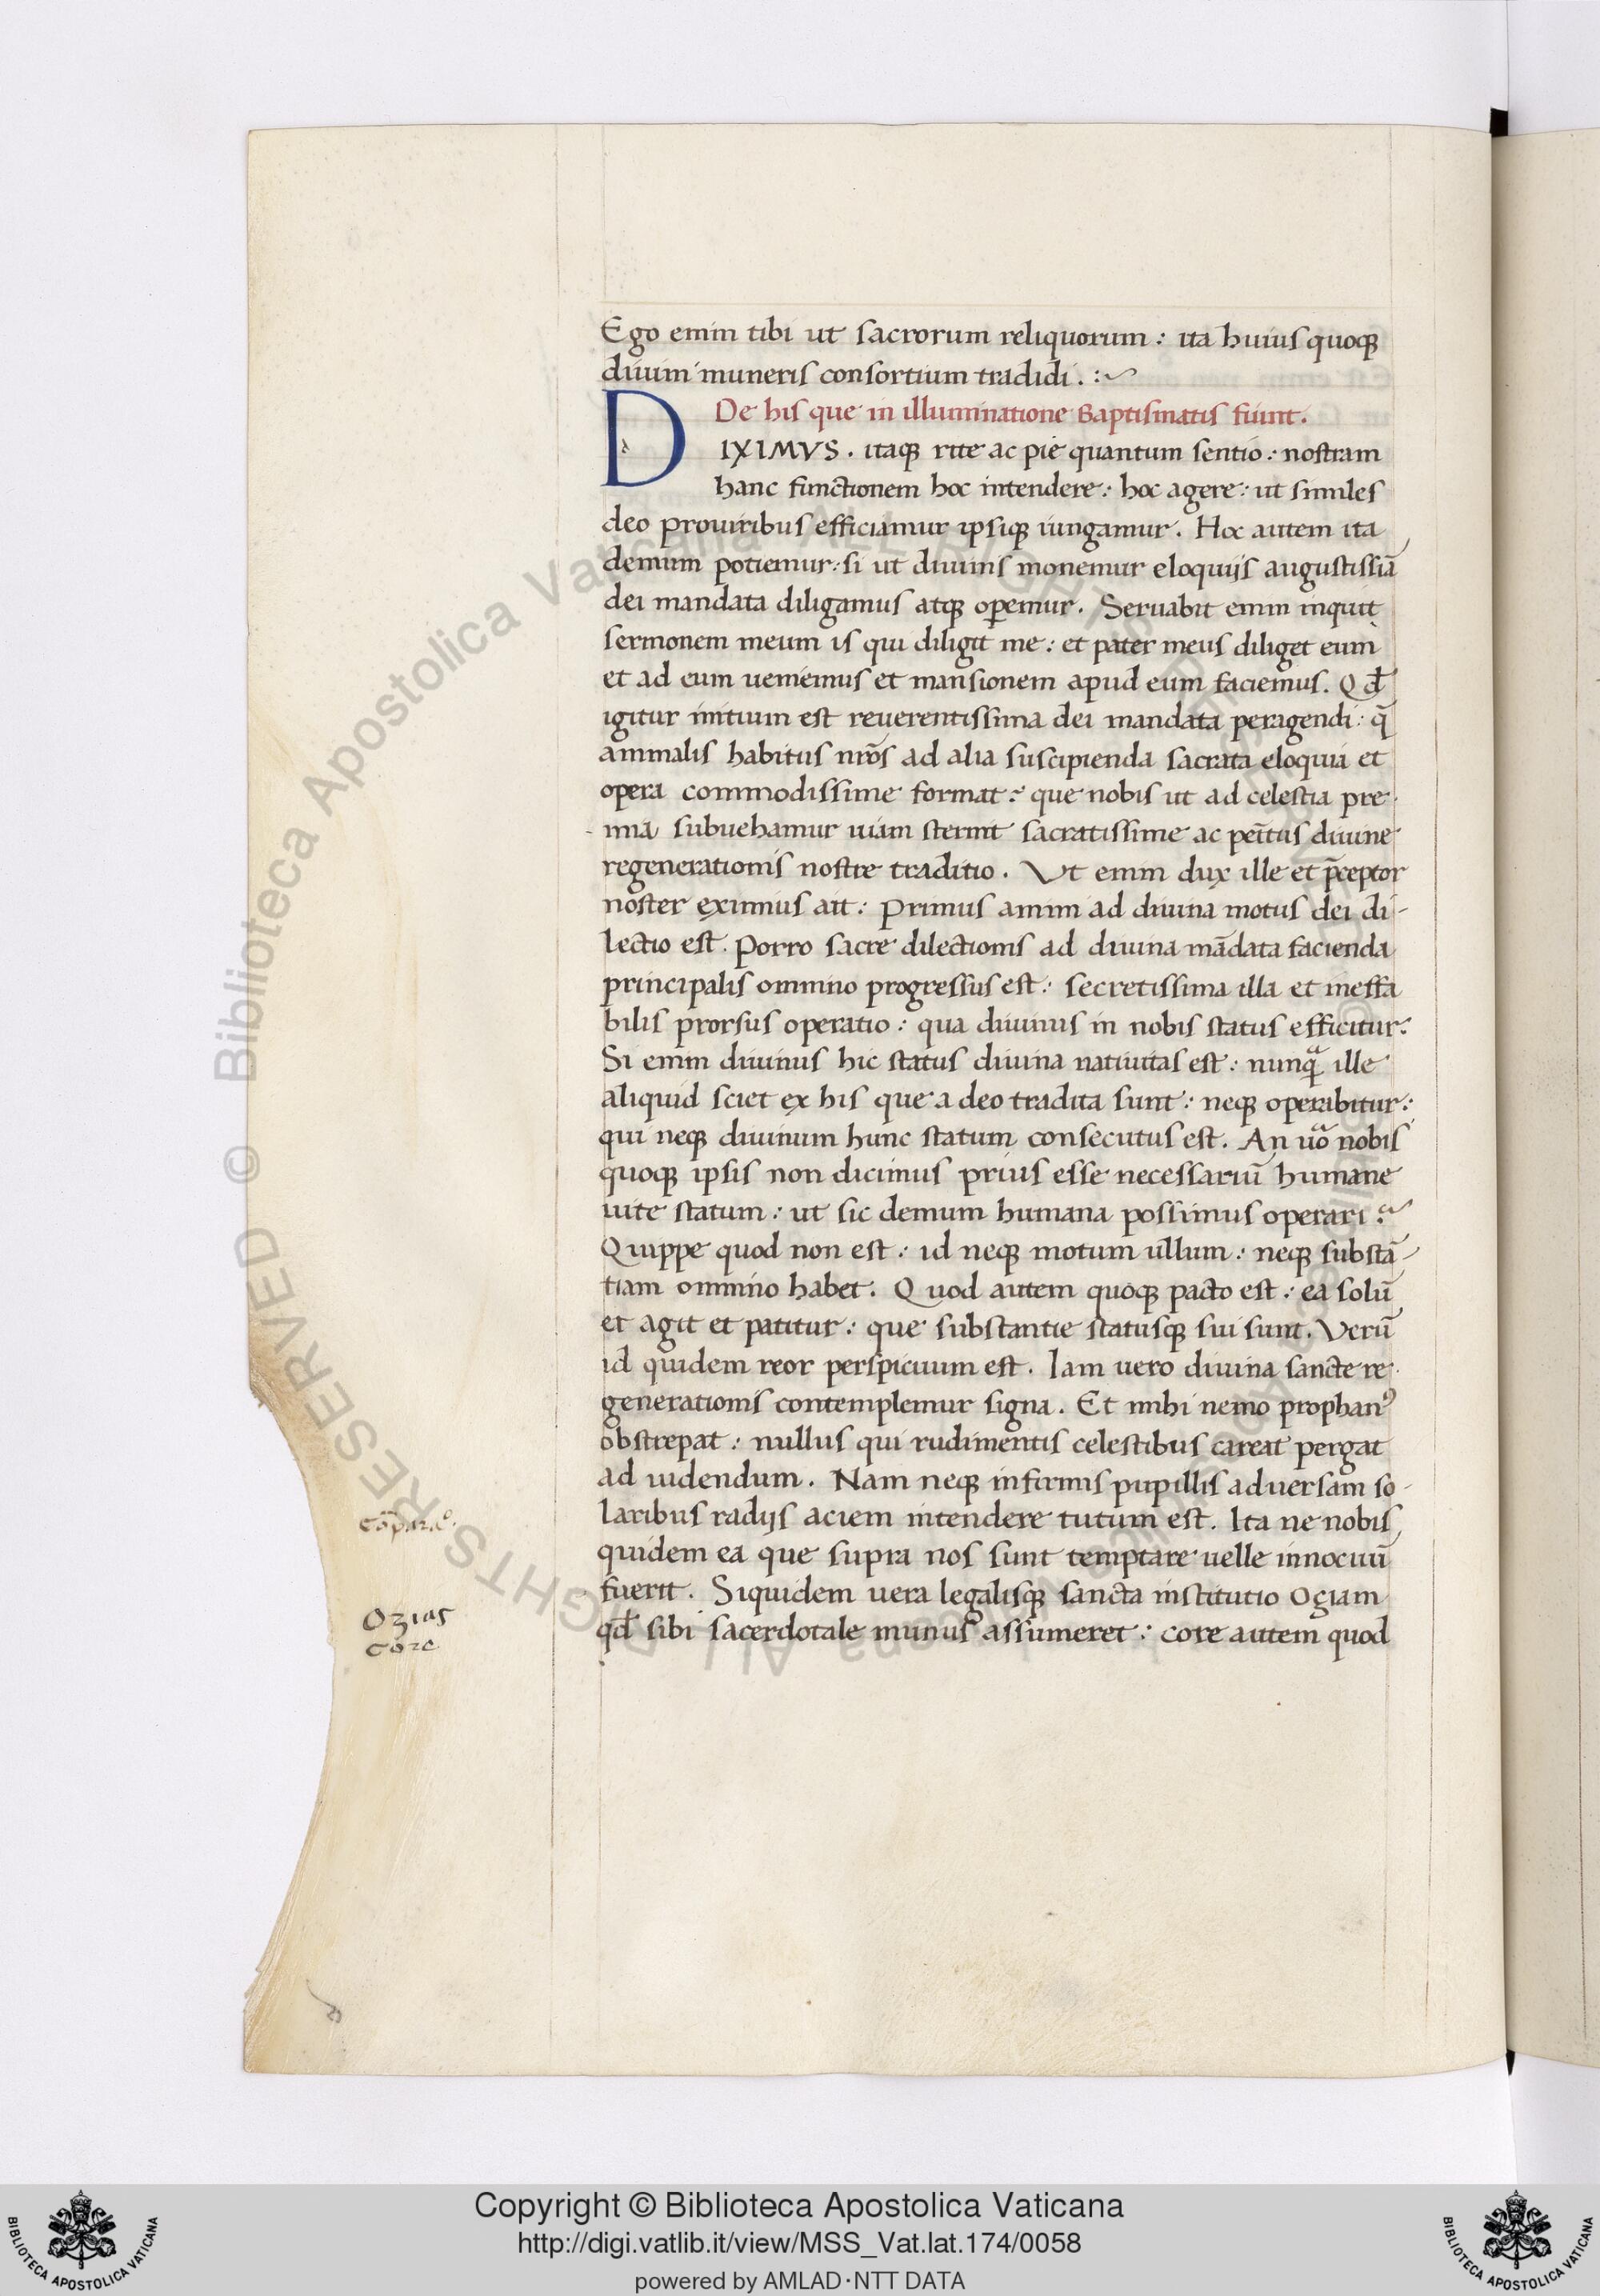 Ego enim tibi ut sacrorum reliquorum : ita huius quoqꝫ
diuini muneris consortium tradidi . :~
De his que in illuminatione Baptismatis fiunt.
DIXIMVS . itaqꝫ rite ac pie quantum sentio : nostram
hanc functionem hoc intendere : hoc agere : ut similes
deo prouiribus efficiamur ipsiqꝫ iungamur . Hoc autem ita
demum potiemur : si ut diuinis monemur eloquijs augustissiā
dei mandata diligamus atqꝫ oꝑemur . Seruabit enim inquit
sermonem meum is qui diligit me : et pater meus diliget eum
et ad eum ueniemus et mansionem apud eum faciemus . Qđ
igitur initium est reuerentissima dei mandata peragendi : q̄
animalis habitus nr̄os ad alia suscipienda sacrata eloquia et
opera commodissime format : que nobis ut ad celestia pre
mia subuehamur uiam sternit sacratissime ac penīt́us diuine
regenerationis nostre traditio . Vt enim dux ille et p̄ceptor
noster eximius ait : Primus animi ad diuina motus dei di-
lectio est . Porro sacre dilectionis ad diuina mādata facienda
principalis omnino progressus est : secretissima illa et ineffa
bilis prorsus operatio : qua diuinus in nobis status efficitur .
Si enim diuinus hic status diuina natiuitas est : nunqᷓ ille
aliquid sciet ex his que a deo tradita sunt : neqꝫ operabitur :
qui neqꝫ diuinum hunc statum consecutus est . An uō nobis
quoqꝫ ipsis non dicimus prius esse necessariū humane
uite statum : ut sic demum humana possimus operari ?
Quippe quod non est : id neqꝫ motum ullum : neqꝫ substā
tiam omnino habet . Quod autem quoqꝫ pacto est : ea solū
et agit et patitur : que substantie statusqꝫ sui sunt . Verū
id quidem reor perspicuum est . Iam uero diuina sancte re
generationis contemplemur signa . Et mihi nemo prophanꝰ
obstrepat : nullus qui rudimentis celestibus careat pergat
ad uidendum . Nam neqꝫ infirmis pupillis aduersam so-
laribus radijs aciem intendere tutum est . Ita ne nobis
quidem ea que supra nos sunt temptare uelle innocuū
fuerit . Siquidem uera legalisqꝫ sancta institutio Ogiam
qđ sibi sacerdotale munus assumeret : core autem quod
Ozias
Core
© Biblioteca Apostolica Vaticana ALL RIGHTS RESERVED
Copyright © Biblioteca Apostolica Vaticana
http://digi.vatlib.it/view/MSS_Vat.lat.174/0058
powered by AMLAD·NTT DATA
BIBLIOTECA APOSTOLICA VATICANA
BIBLIOTECA APOSTOLICA VATICANA